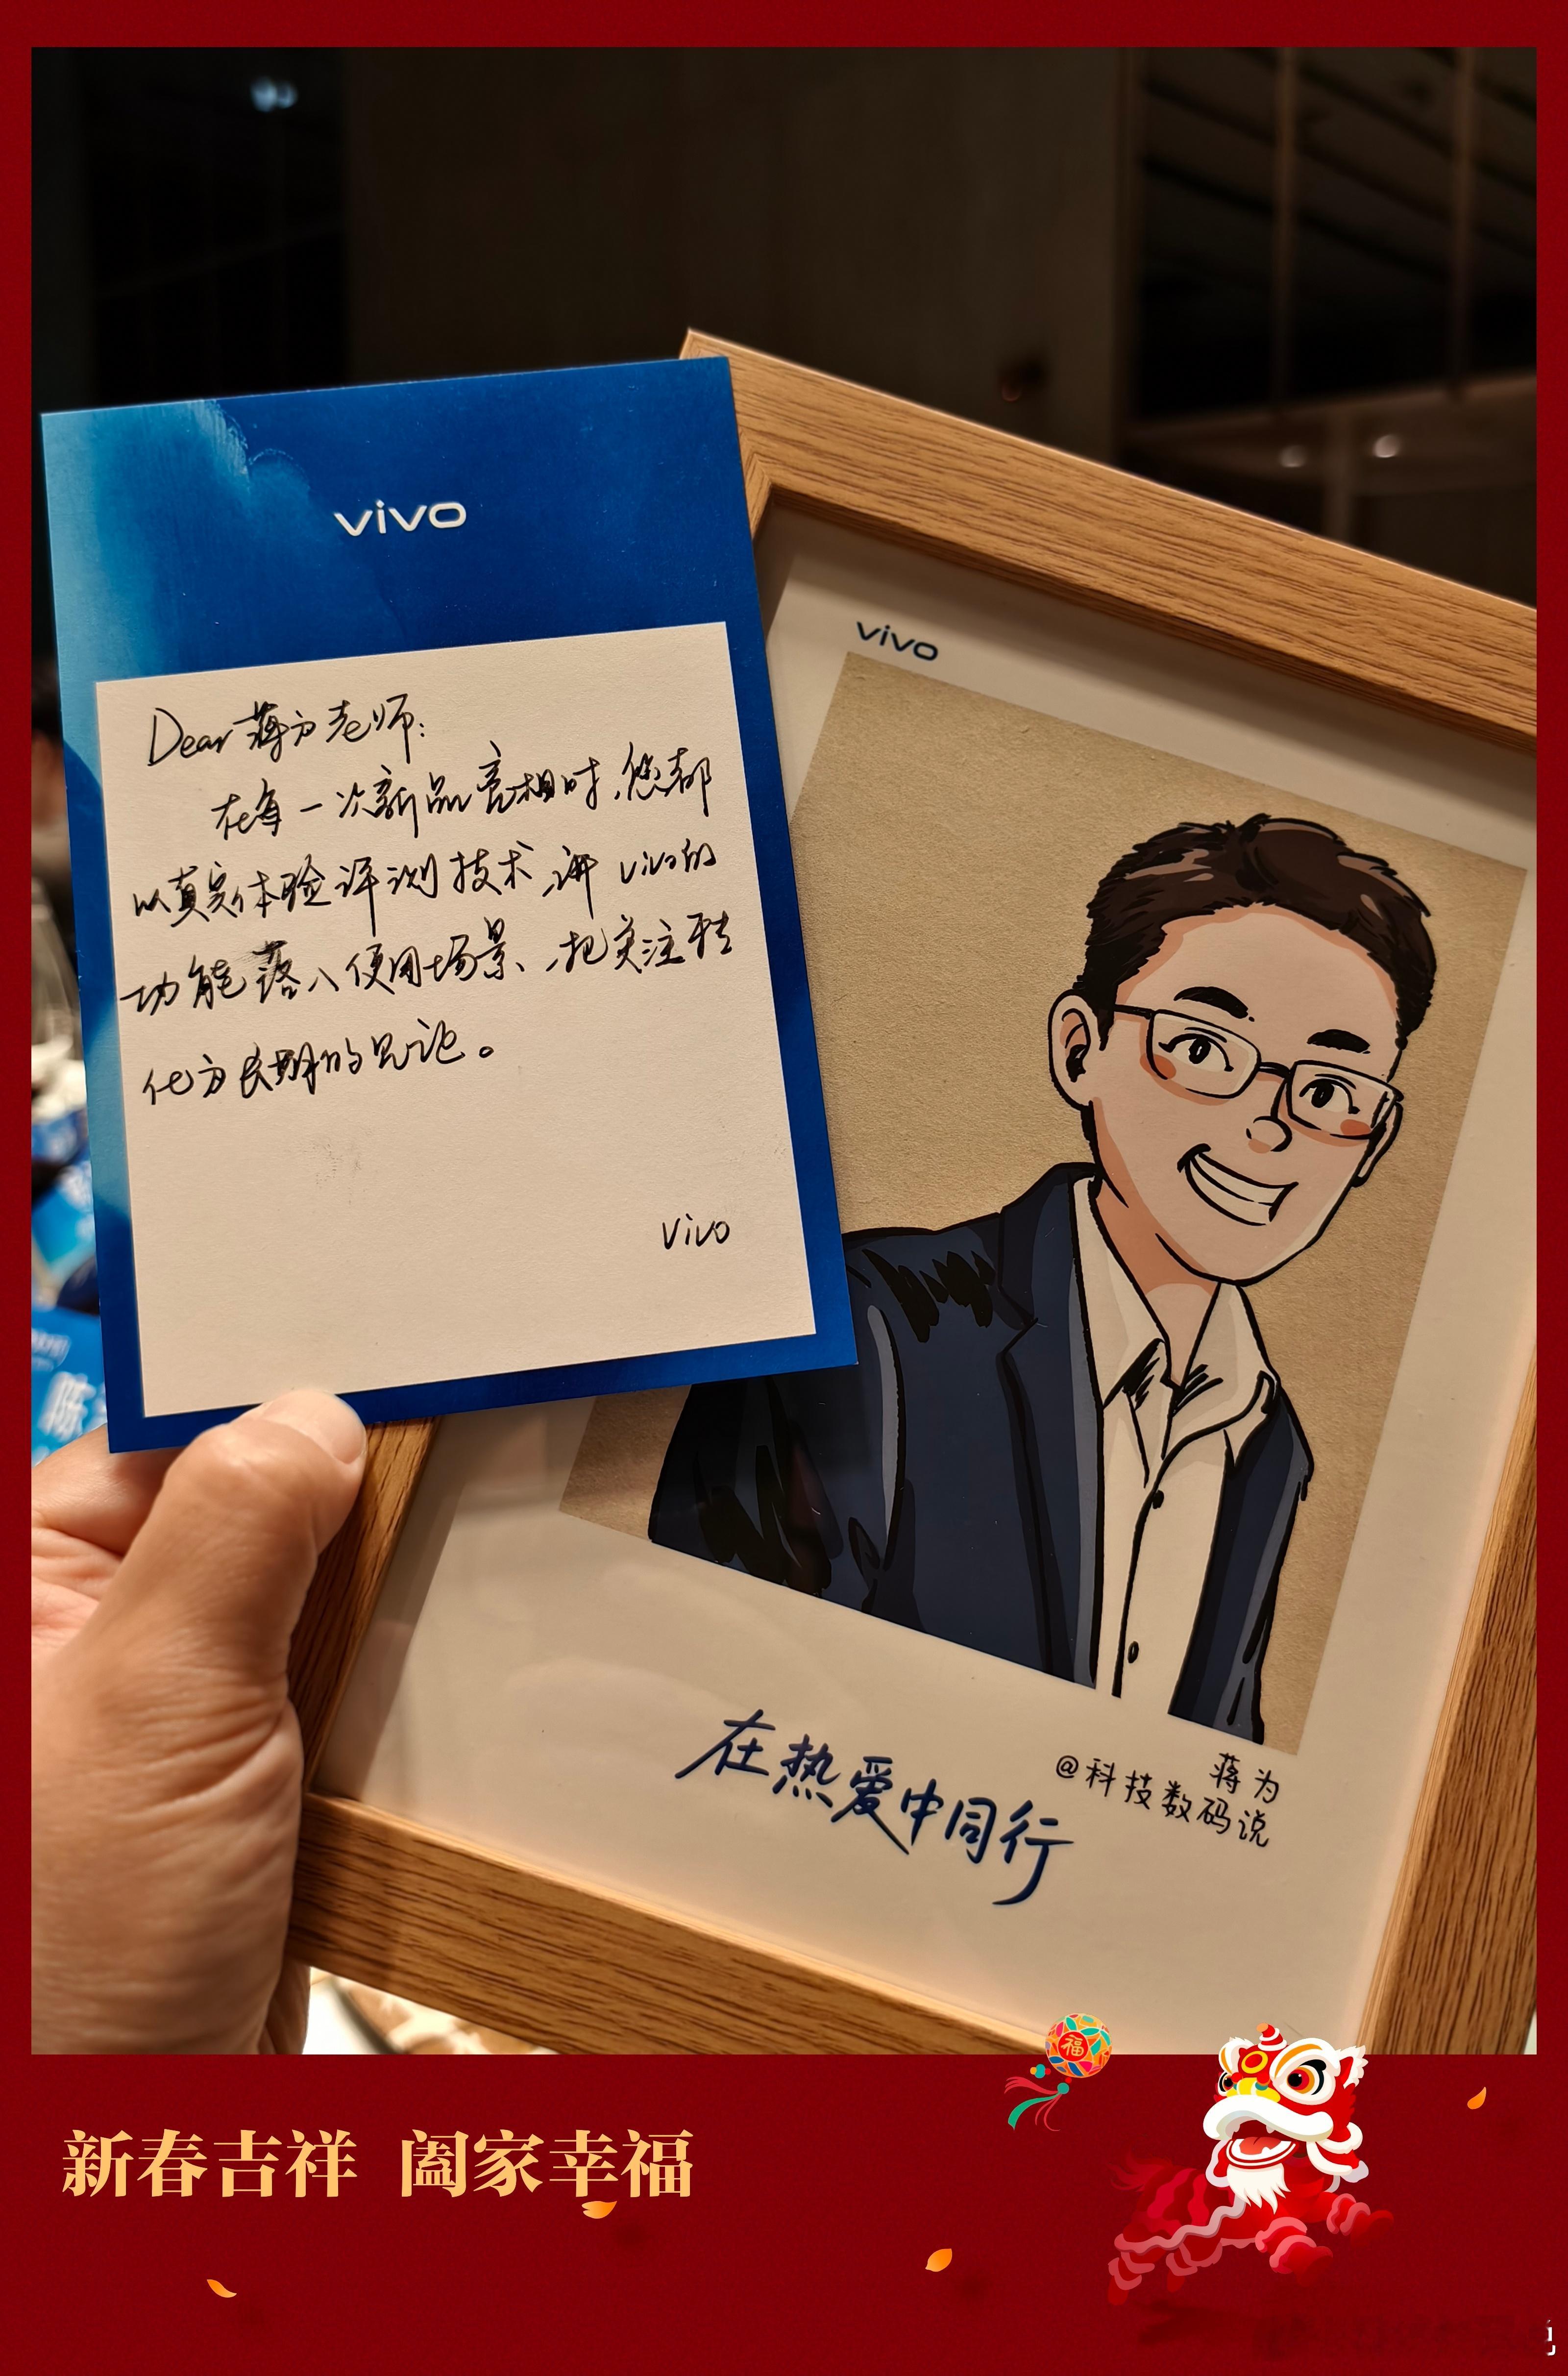 vivo
Dear 蒋为老师:
在每一次新品亮相时,您都
以真实体验评测技术,讲vivo的
功能落入使用场景、,把关注转
化为长期的见证。
vivo
vivo
在热爱中同行
蒋为
@科技数码说
陈
福
新春吉祥 阖家幸福